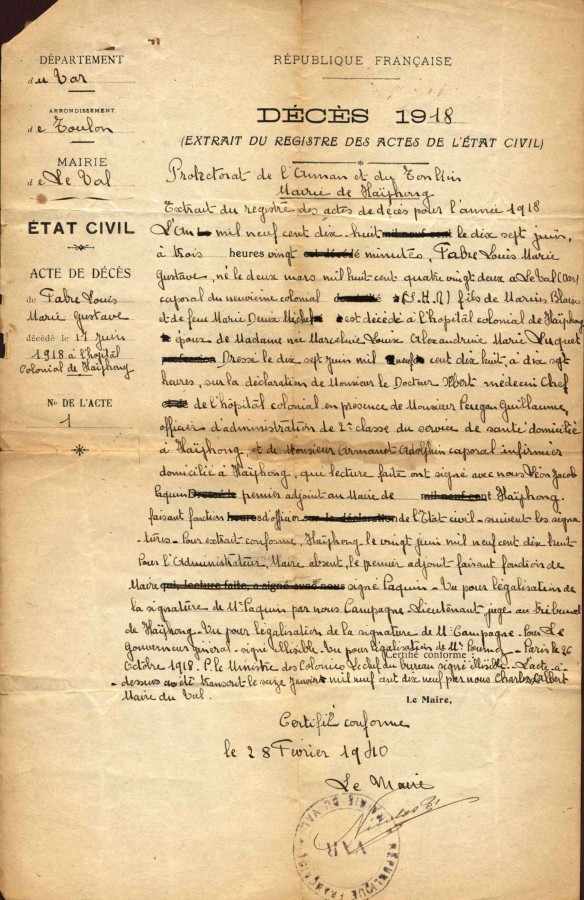 DÉPARTEMENT
du Var
ARRONDISSEMENT
de Toulon
MAIRIE
de Le Val
ÉTAT CIVIL
ACTE DE DÉCÈS
de Fabre Louis
Marie Gustave
décédé le 17 juin
1918 à l'hopital
Colonial de Haïphong
No DE L'ACTE
1
RÉPUBLIQUE FRANÇAISE
DÉCÈS 1918
(EXTRAIT DU REGISTRE DES ACTES DE L'ÉTAT CIVIL)
Protectorat de l'Annam et du Tonkin
Mairie de Haïphong
Extrait du registre des actes de décès pour l'année 1918
L'an mil neuf cent dix huit mil neuf cent le dix sept juin,
à trois heures vingt minutes, Fabre Louis Marie
Gustave, né le deux mars mil huit cent quatre vingt deux à Le Val (Var)
caporal du neuvième colonial fils de Marius Blaise
et de feue Marie Deuxx est décédé à l'hopital colonial de Haïphong
époux de Madame née Marceline Louise Alexandrine Marie Luquet
profession Dressé le dix sept juin mil neuf cent dix huit, à dix sept
heures, sur la déclaration de Monsieur le Docteur médecin Chef
de l'hôpital colonial en présence de Monsieur Guillaume,
officier d'administration de 2e classe du service de santé domicilié
à Haïphong, et de Monsieur Armanet Adolphin caporal infirmier
domicilié à Haïphong, qui lecture faite ont signé avec nous Léon Jacob
Paquin Dressé le premier adjoint au Maire de mil neuf cent Haïphong.
faisant fonction heures d'officier sur la déclaration de l'Etat civil - suivent les signa-
tures - Pour extrait conforme, Haïphong le vingt juin mil neuf cent dix huit
Pour l'Administrateur, Maire absent, le premier adjoint faisant fonction de
Maire qui, lecture faite, a signé avec nous signé Paquin - Vu pour légalisation de
la signature de Mr Paquin par nous Campagne Lieutenant juge au tribunal
de Haïphong. Vu pour légalisation de la signature de Mr Campagne. Pour Le
Gouverneur général - signé illisible. Vu pour légalisation de Mr - Paris le 26
Certifié conforme :
Octobre 1918. P. le Ministre des Colonies Le chef du bureau signé illisible. L'acte ci-
dessus a été transcrit le seize Janvier mil neuf cent dix neuf par nous Charles Albert
Maire du Val.
Le Maire,
Certifié conforme
le 28 Février 1940
Le Maire
MAIRIE DU VAL
VAR
RÉPUBLIQUE FRANÇAISE